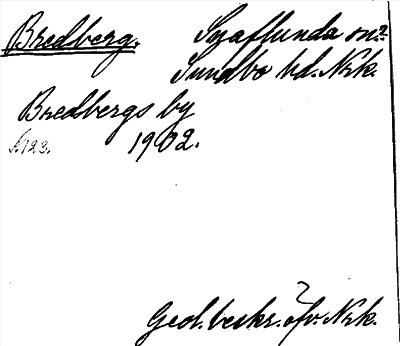 Bredberg. Svaflunda sn?
Sundbo hd. Nrk.
Bredbergs by
s.123. 1902.
Geol. beskr. öfv. Nrk.